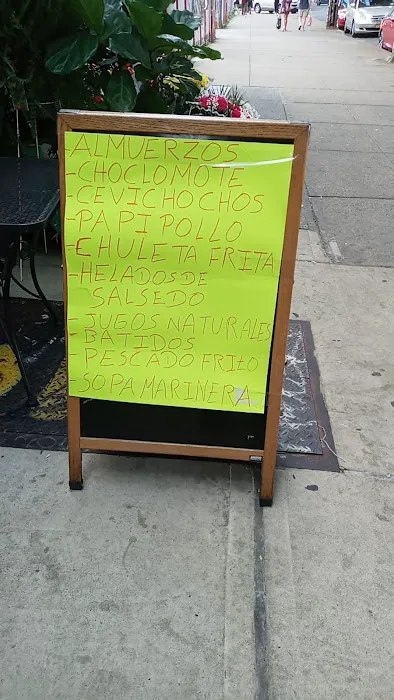 -ALMUERZOS
-CHOCLOMOTE
-CEVICHOCHOS
-PAPI POLLO
-CHULETA FRITA
-HELADOS DE
SALSEDO
-JUGOS NATURALES
BATIDOS
-PESCADO FRITO
-SOPA MARINERA